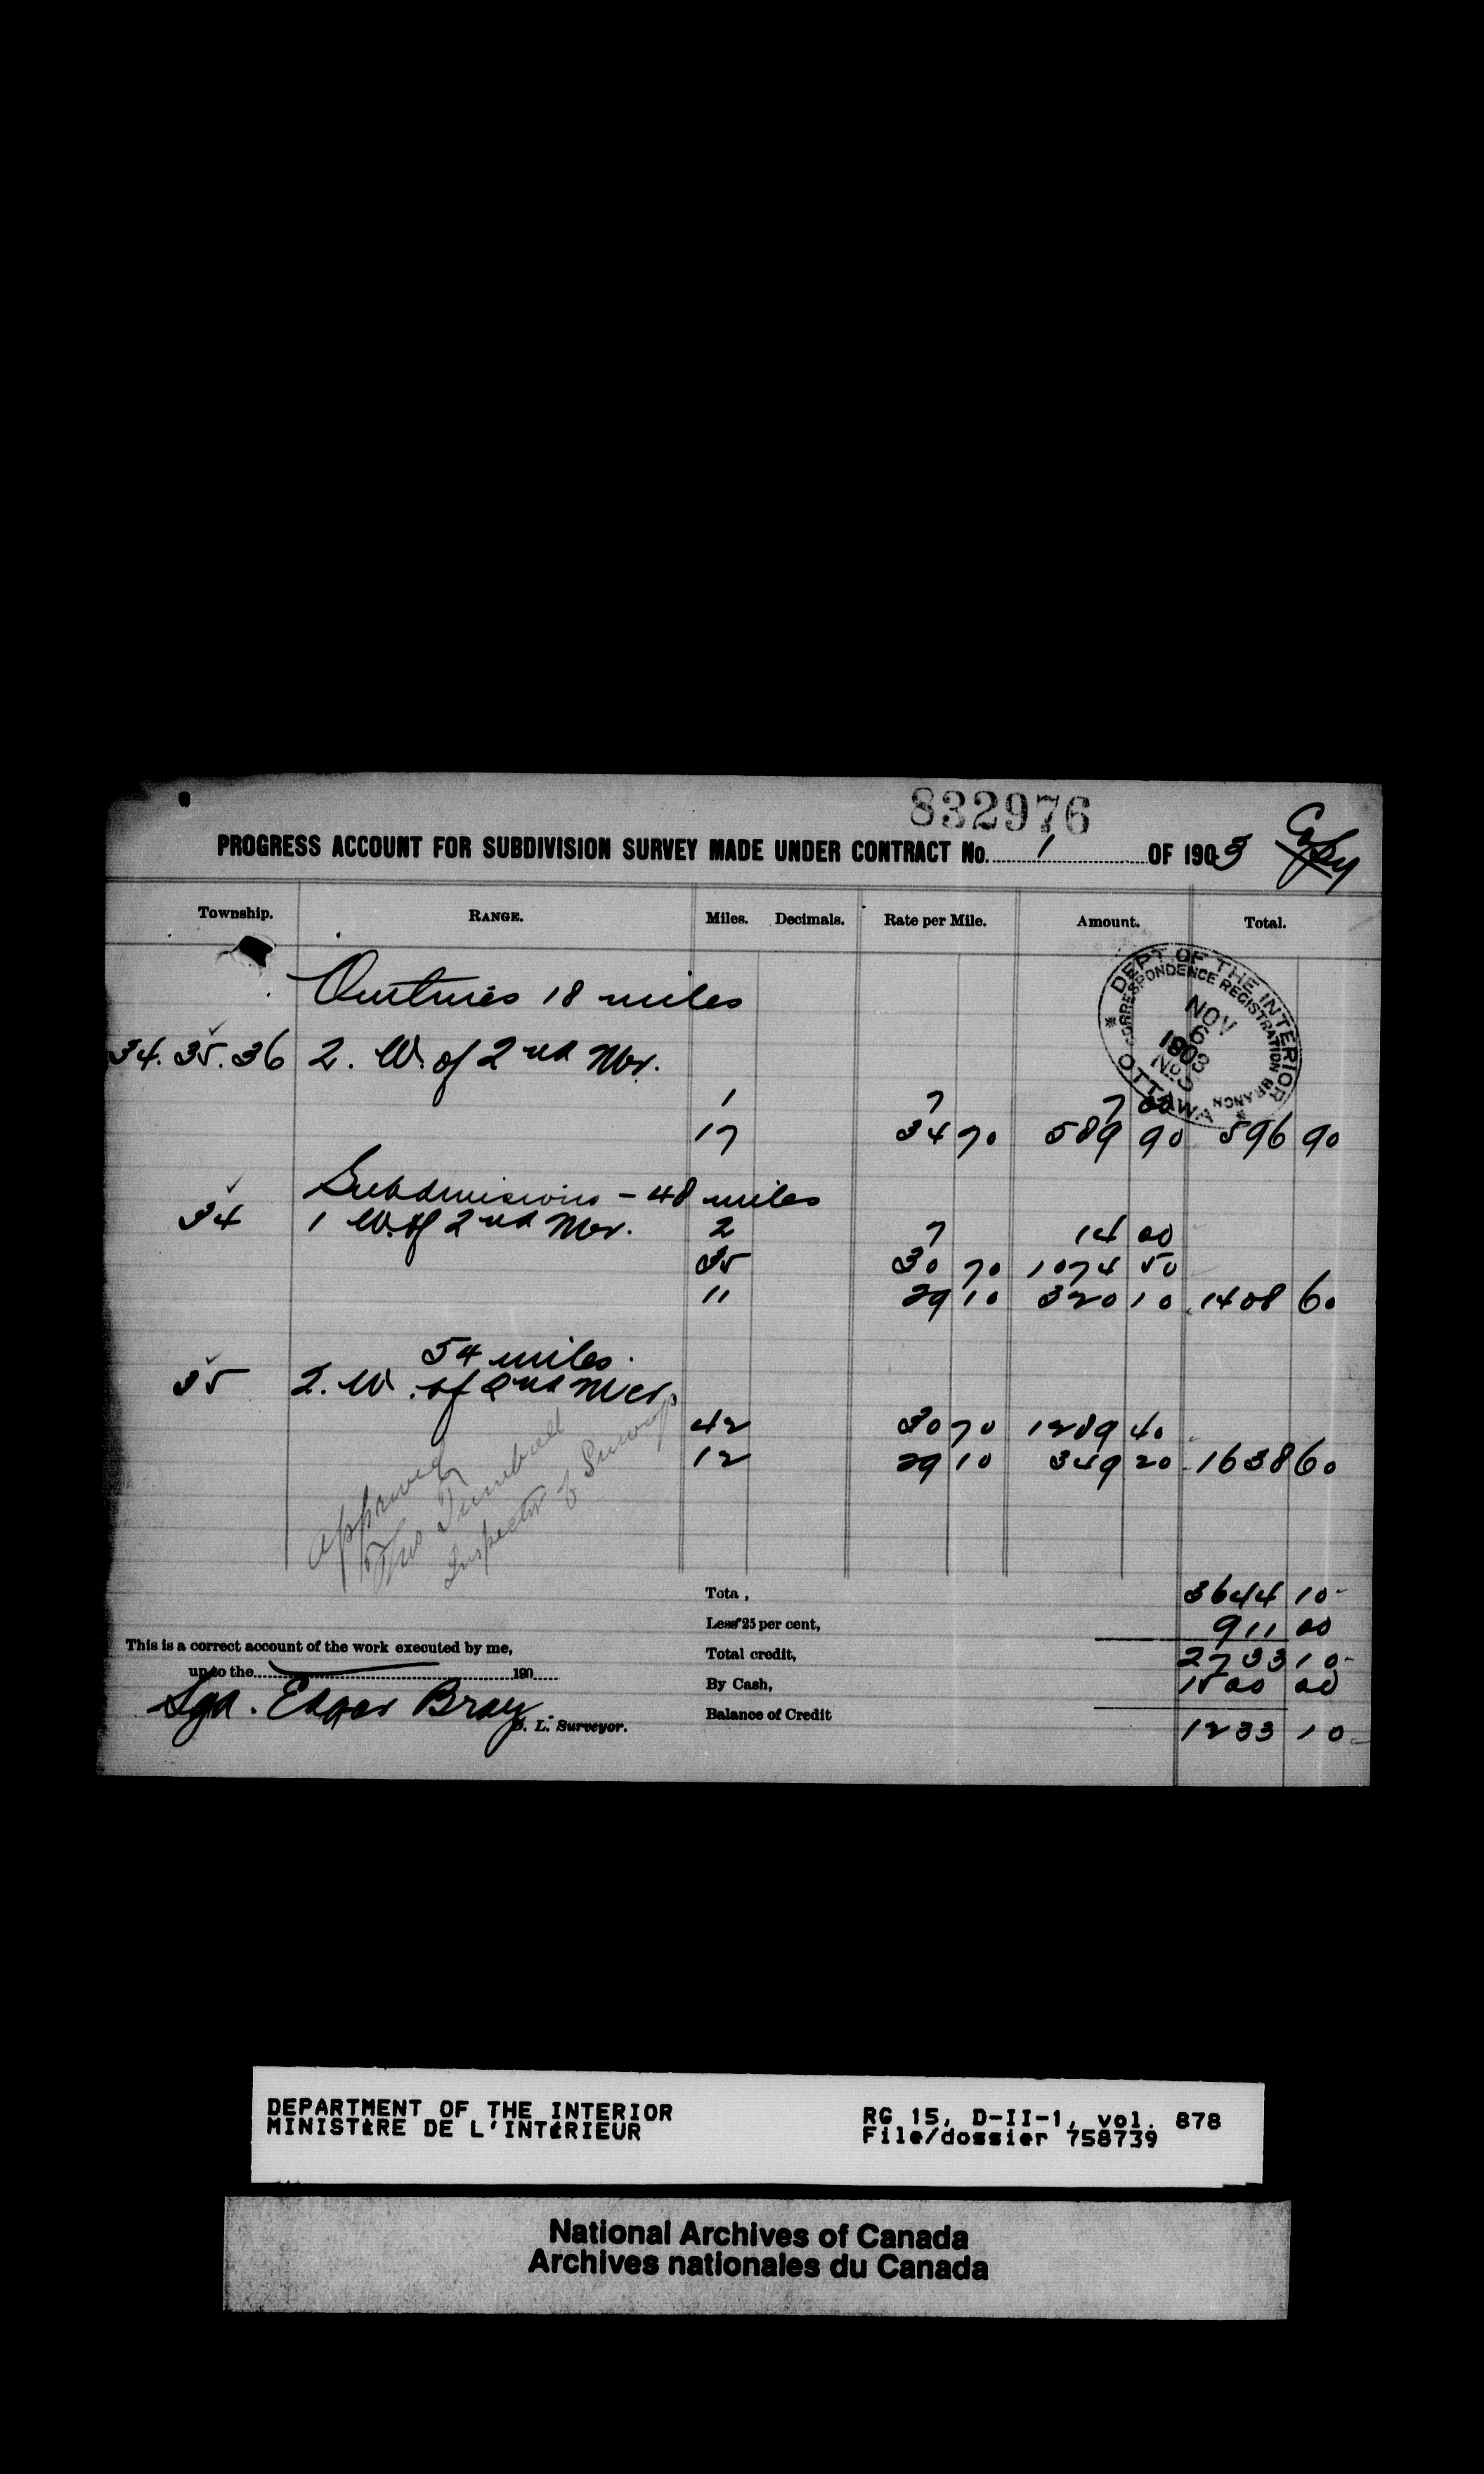 832976
PROGRESS ACCOUNT FOR SUBDIVISION SURVEY MADE UNDER CONTRACT No. 1 OF 1903 Copy
Township. RANGE. Miles. Decimals. Rate per Mile. Amount. Total.
DEPT OF THE INTERIOR
CORRESPONDENCE REGISTRATION BRANCH
NOV
6
1903
No. 5
OTTAWA
Outlines 18 miles
34. 35. 36 2. W. of 2nd Mer.
1 7 7 00
17 34 70 589 90 596 90
Subdivisions - 48 miles
34 1 W. of 2nd Mer. 2 7 14 00
35 30 70 1074 50
11 29 10 320 10 1408 60
54 miles.
35 2. W. of 2nd Mer.
42 30 70 1289 40
12 29 10 349 20 1638 60
approved
Thos Turnbull
Inspector of Surveys
Tota , 3644 10
Less 25 per cent, 911 00
This is a correct account of the work executed by me,
Total credit, 2733 10
up to the 190
By Cash, 1500 00
Sgd. Edgar Bray
D. L. Surveyor.
Balance of Credit 1233 10
DEPARTMENT OF THE INTERIOR RG 15, D-II-1, vol. 878
MINISTÈRE DE L'INTÉRIEUR File/dossier 758739
National Archives of Canada
Archives nationales du Canada